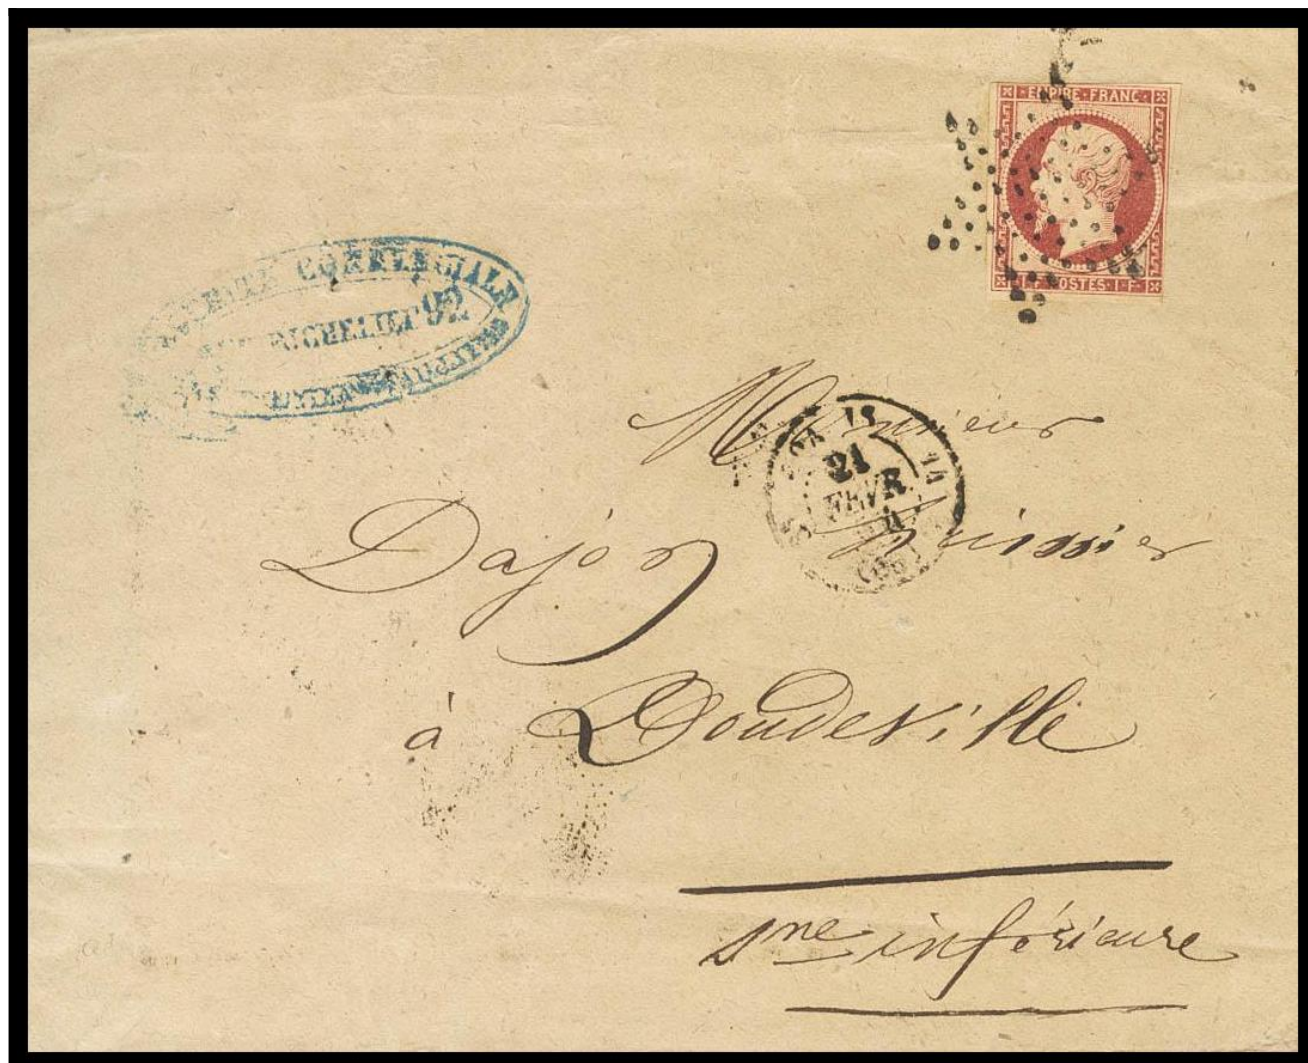 EMPIRE · FRANC ·
1 · F · POSTES · 1 · F ·
COMMERCIALE
RICHELIEU 92
21
FEVR
(60)
Monsieur
Dajon huissier
à Doudeville
Sne inférieure